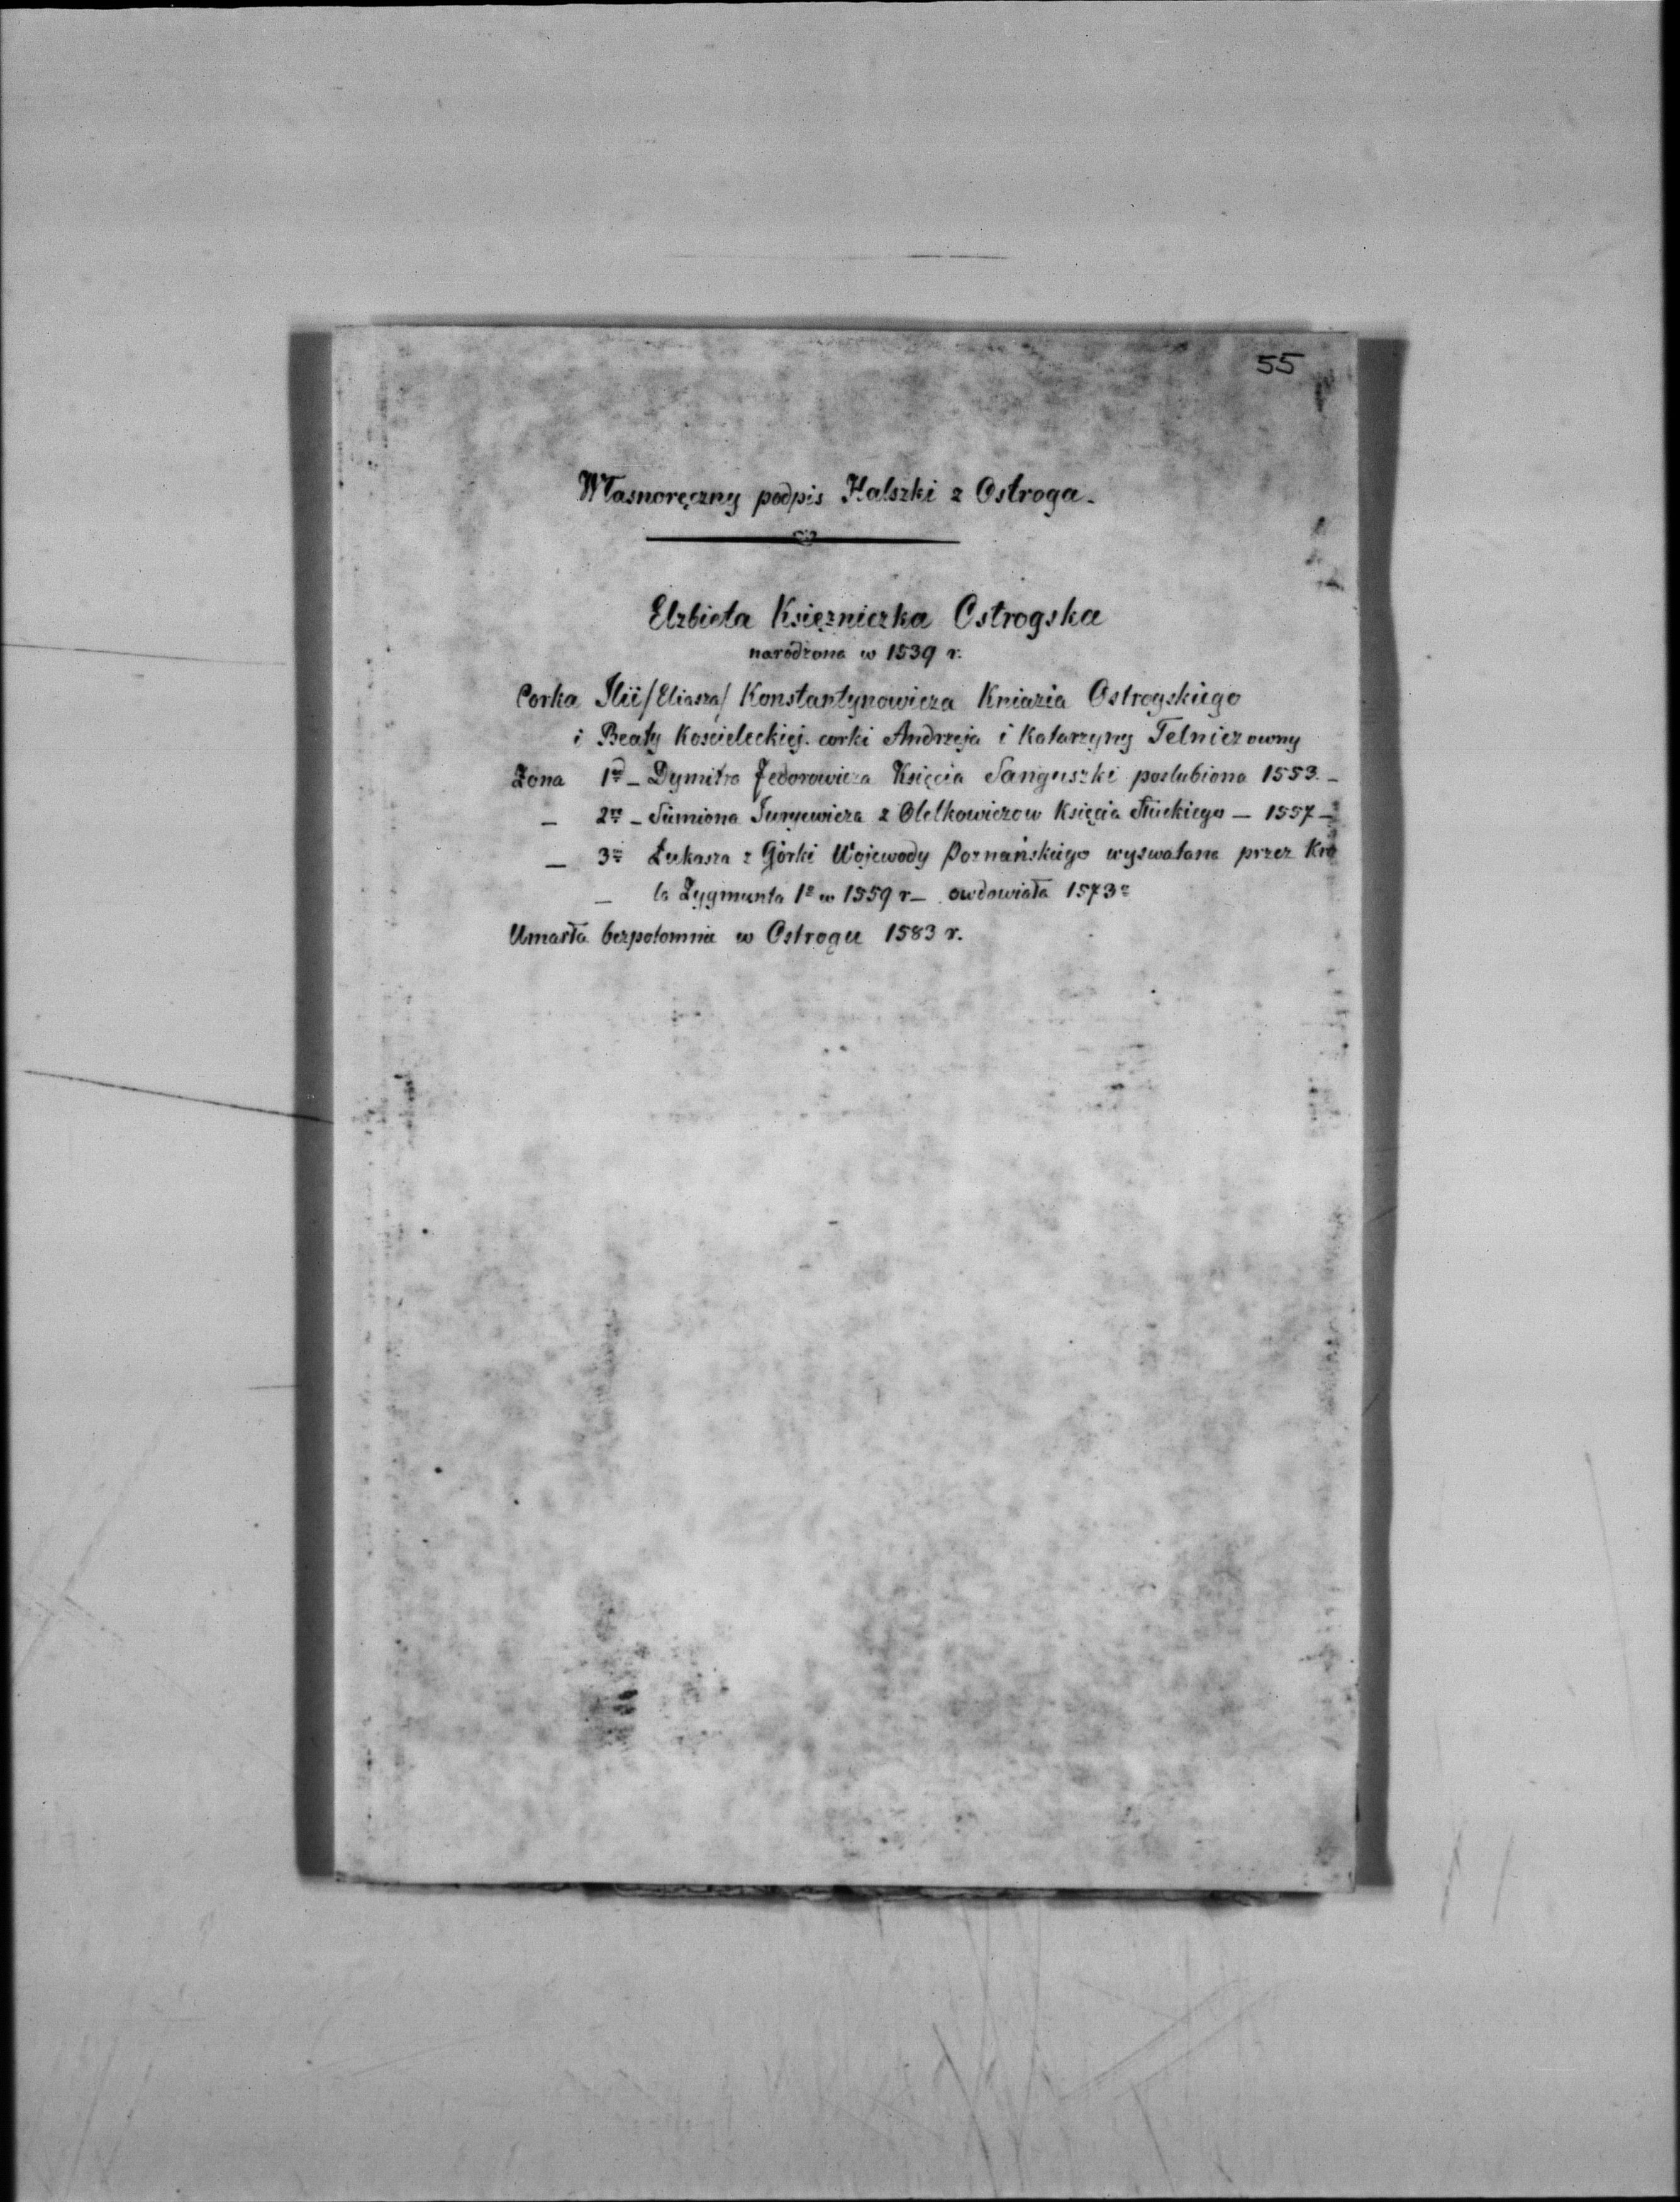 55
Własnoręczny podpis Halszki z Ostroga.
Elzbieta Księzniczka Ostrogska
narodzona w 1539 r.
Corka Ilii /Eliasza/ Konstantynowicza Kniazia Ostrogskiego
i Beaty Koscieleckiej. corki Andrzeja i Katarzyny Telniczowny
Zona 1º – Dymitra Fedorowicza Księcia Sanguszki poslubiona 1553. –
– 2º – Siemiona Juryewicza z Olelkowiczow Księcia Słuckiego – 1557 –
– 3º Łukasza z Górki Wojewody Poznańskiego wyswatana przez Kró
– la Zygmunta 1º w 1559 r – owdowiała 1573 r
Umarła bezpotomnie w Ostrogu 1583 r.